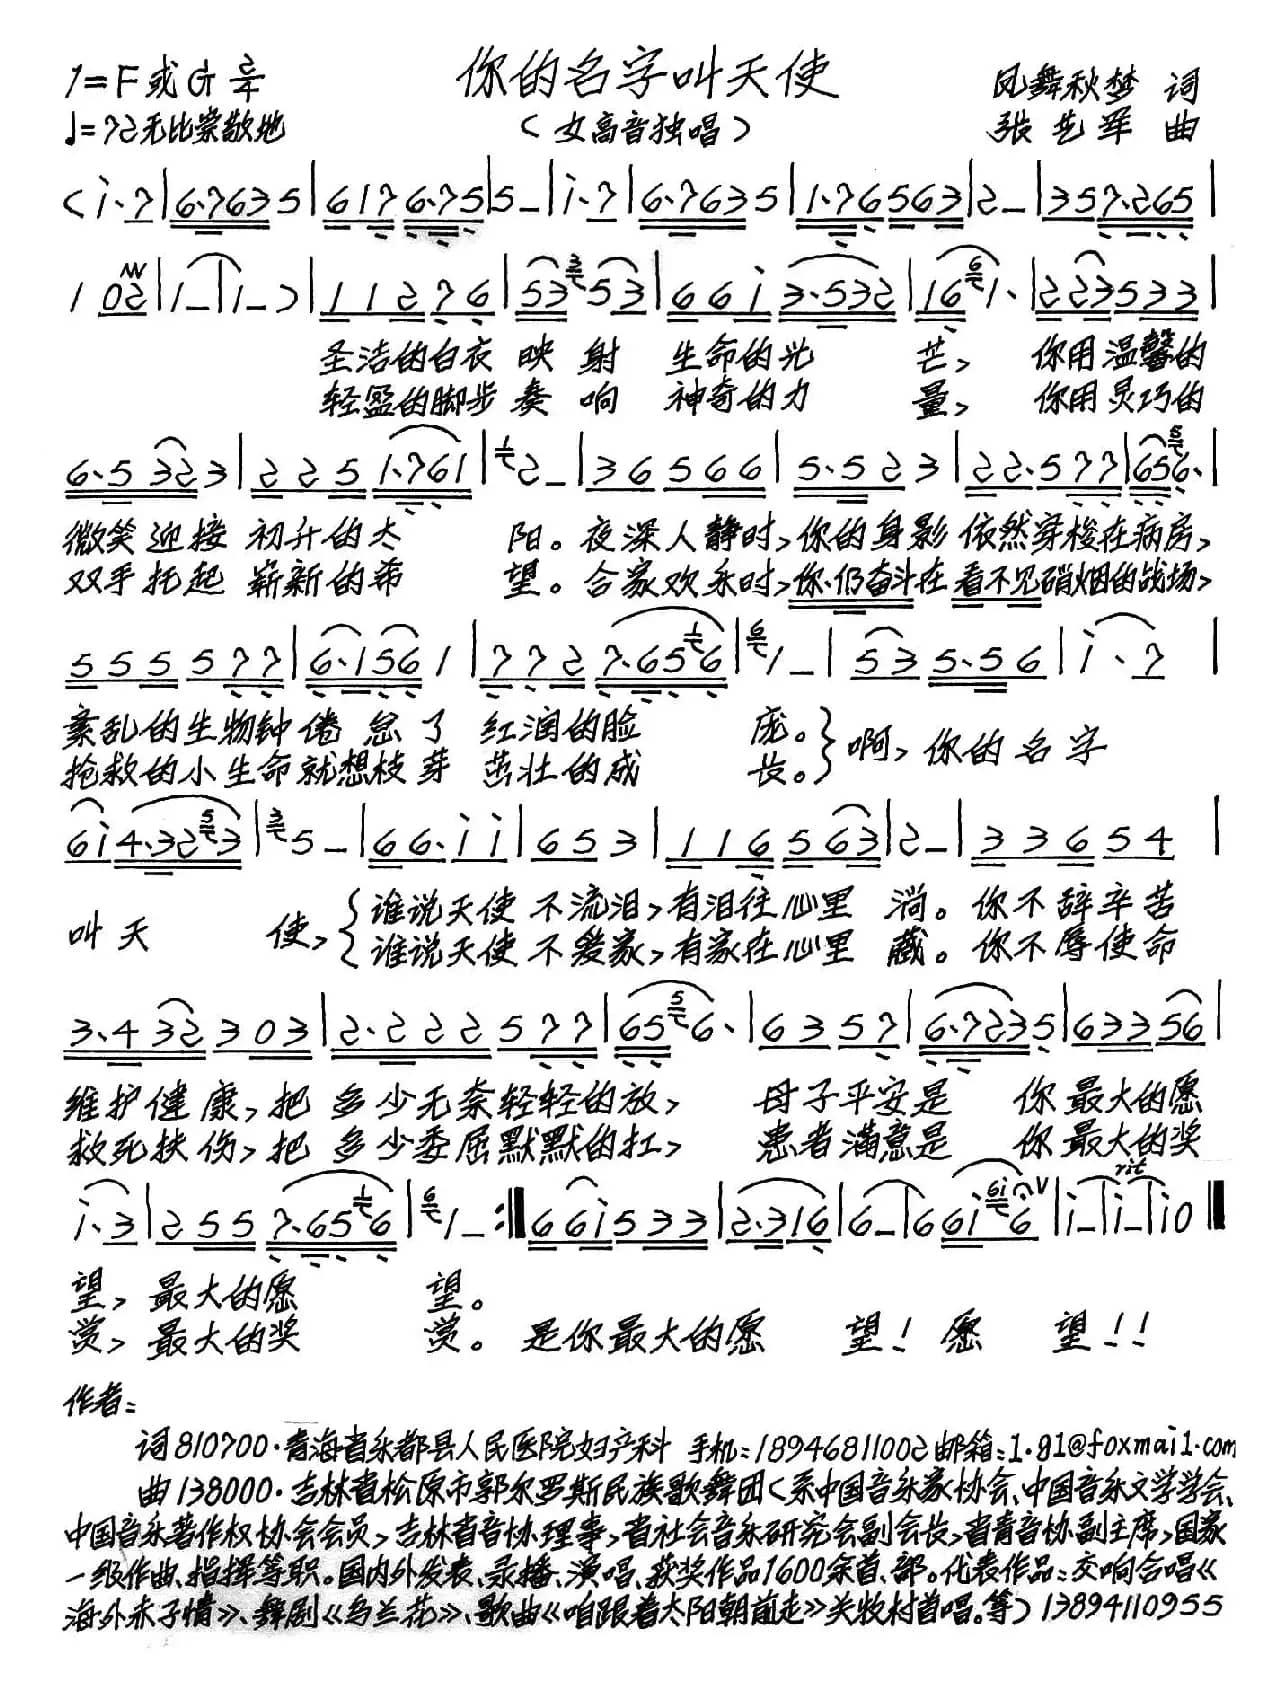 你的名字叫天使
1=F或G 2/4
凤舞秋梦 词
♩=72无比崇敬地
(女高音独唱)
张艺军 曲
(i·7|6·7635|6176·75|5–|i·7|6·7635|1·76563|2–|357·265|
1 02|1–|1–)|11276|53 53|66i3·532|161·|223533|
圣洁的白衣映射 生命的光 芒, 你用温馨的
轻盈的脚步奏响 神奇的力 量, 你用灵巧的
6·5323|2251·761|2–|36566|5·523|22·577|656·|
微笑迎接 初升的太 阳。夜深人静时,你的身影依然穿梭在病房,
双手托起 崭新的希 望。合家欢乐时,你仍奋斗在看不见硝烟的战场,
555577|6·1561|7727·656|1–|535·56|i·7|
紊乱的生物钟倦怠了 红润的脸 庞。 啊,你的名字
抢救的小生命就想枝芽 茁壮的成 长。
6i4·323|5–|66·ii|653|116563|2–|33654|
叫天 使,
谁说天使不流泪,有泪往心里 淌。你不辞辛苦
谁说天使不爱家,有家在心里 藏。你不辱使命
3·432303|2·222577|656·|6357|6·7235|63356|
维护健康,把多少无奈轻轻的放, 母子平安是 你最大的愿
救死扶伤,把多少委屈默默的扛, 患者满意是 你最大的奖
i·3|2557·656|1–:‖66i533|2·316|6–|66i6|i–|i–|i0‖
rit
望,最大的愿 望。
赏,最大的奖 赏。是你最大的愿 望!愿 望!!
作者:
词810700·青海省乐都县人民医院妇产科 手机:18946811002邮箱:1.81@foxmail.com
曲138000·吉林省松原市郭尔罗斯民族歌舞团(系中国音乐家协会、中国音乐文学学会、
中国音乐著作权协会会员,吉林省音协理事,省社会音乐研究会副会长,省青音协副主席,国家
一级作曲、指挥等职。国内外发表、录播、演唱、获奖作品1600余首、部。代表作品:交响合唱《
海外赤子情》、舞剧《乌兰花》、歌曲《咱跟着太阳朝前走》关牧村首唱。等)13894110955